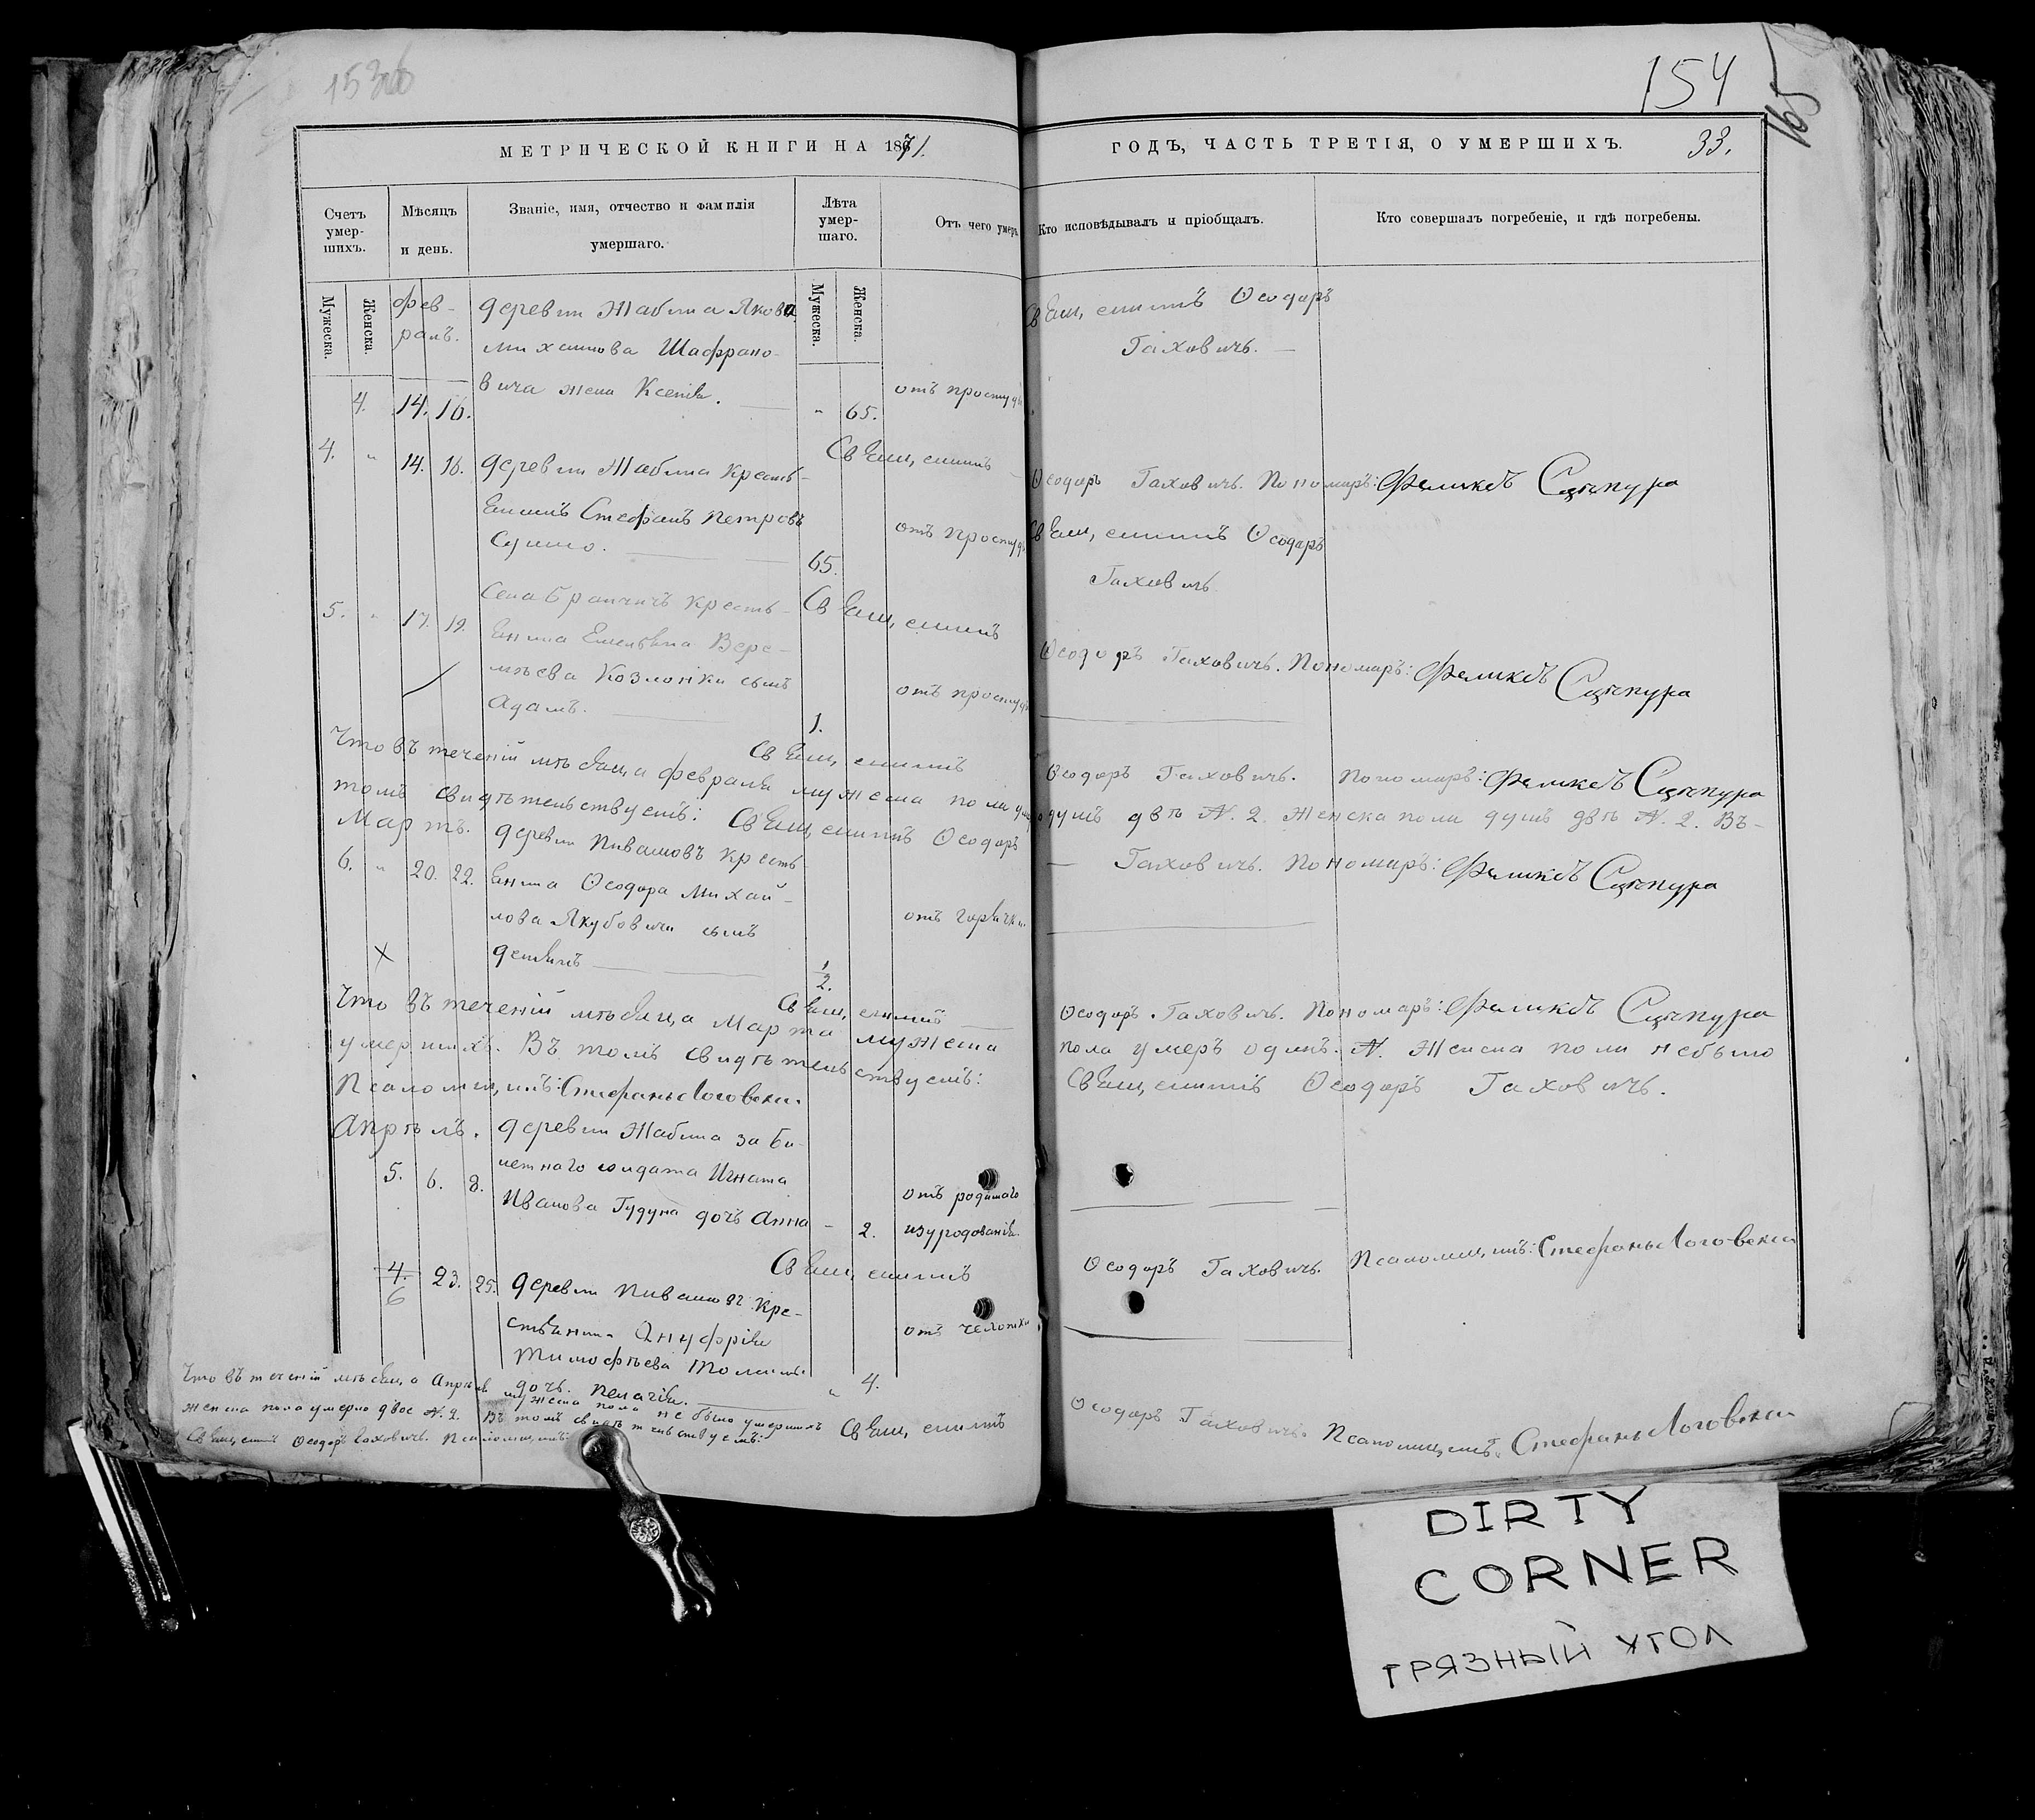 153об
154
165
МЕТРИЧЕСКОЙ КНИГИ НА 1871.
ГОДЪ, ЧАСТЬ ТРЕТІЯ, О УМЕРШИХЪ.
33.
Счетъ умер-шихъ.
Мѣсяцъ и день.
Званіе, имя, отчество и фамилія умершаго.
Лѣта умер-шаго.
Отъ чего умеръ.
Кто исповѣдывалъ и пріобщалъ.
Кто совершалъ погребеніе, и гдѣ погребены.
Мужеска.
Женска.
Мужеска.
Женска.
Фев-
раль.
деревни Жабина Якова
Михаилова Шафрано-
вича жена Ксенія.
4. 14. 16.
" 65.
отъ простуды
Священникъ Ѳеодоръ
Гаховичъ.
Священникъ
Ѳеодоръ Гаховичъ. Пономарь: Феликсъ Сцѣпура
4. " 14. 16. деревни Жабина кресть-
янинъ Стефанъ Петровъ
65.
отъ простуды
Священникъ Ѳеодоръ
Гаховичъ
Священникъ
Ѳеодоръ Гаховичъ. Пономарь: Феликсъ Сцѣпура
5. " 17. 19.
Села кресть-
янина Емельяна Вере-
мѣева Козловки сынъ
Адамъ.
1.
отъ простуды
Священникъ
Ѳеодоръ Гаховичъ. Пономарь: Феликсъ Сцѣпура
Что въ теченіи мѣсяца февраля мужеска пола умерло душъ двѣ №. 2. Женска пола душъ двѣ №. 2. Въ-
томъ свидѣтельствуемъ: Священникъ Ѳеодоръ Гаховичъ. Пономарь: Феликсъ Сцѣпура
Мартъ.
6. " 20. 22.
деревни Пивашовъ кресть
янина Ѳеодора Михай-
лова Якубовича сынъ
1/2.
отъ горячки
Священникъ
Ѳеодоръ Гаховичъ. Пономарь: Феликсъ Сцѣпура
Что въ теченіи мѣсяца Марта мужеска пола умеръ одинъ. №. Женска пола небыло
умершихъ. Въ томъ свидѣтельствуемъ: Священникъ Ѳеодоръ Гаховичъ.
Псаломщикъ: Стефанъ Логовски
Апрѣль.
деревни Жабина за би-
летнаго солдата Игната
Иванова Гудуна дочь Анна
5. 6. 8.
2.
отъ родимаго
изуродованія.
Священникъ
Ѳеодоръ Гаховичъ. Псаломщикъ: Стефанъ Логовски
4.
6
23. 25.
деревни Пивашовъ кре-
стьянина Онуфрія
Тимофѣева
дочь. Пелагія.
" 4.
отъ
Священникъ
Ѳеодоръ Гаховичъ. Псаломщикъ: Стефанъ Логовски
Что въ теченіи мѣсяца Апрѣля мужеска пола не было умершихъ
женска пола умерло двое №. 2. Въ томъ свидѣтельствуемъ:
Священникъ Ѳеодоръ Гаховичъ. Псаломщикъ:
DIRTY
CORNER
ГРЯЗНЫЙ УГОЛ